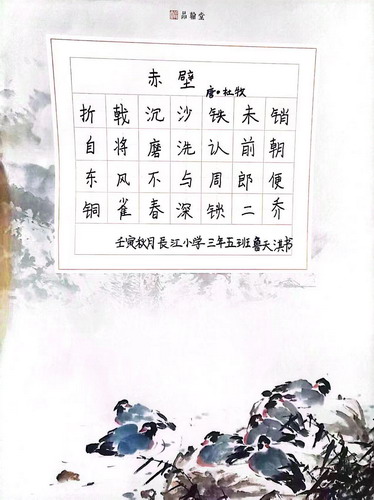 品翰堂
赤壁
唐·杜牧
折戟沉沙铁未销
自将磨洗认前朝
东风不与周郎便
铜雀春深锁二乔
壬寅秋月長江小学三年五班鲁天淇书